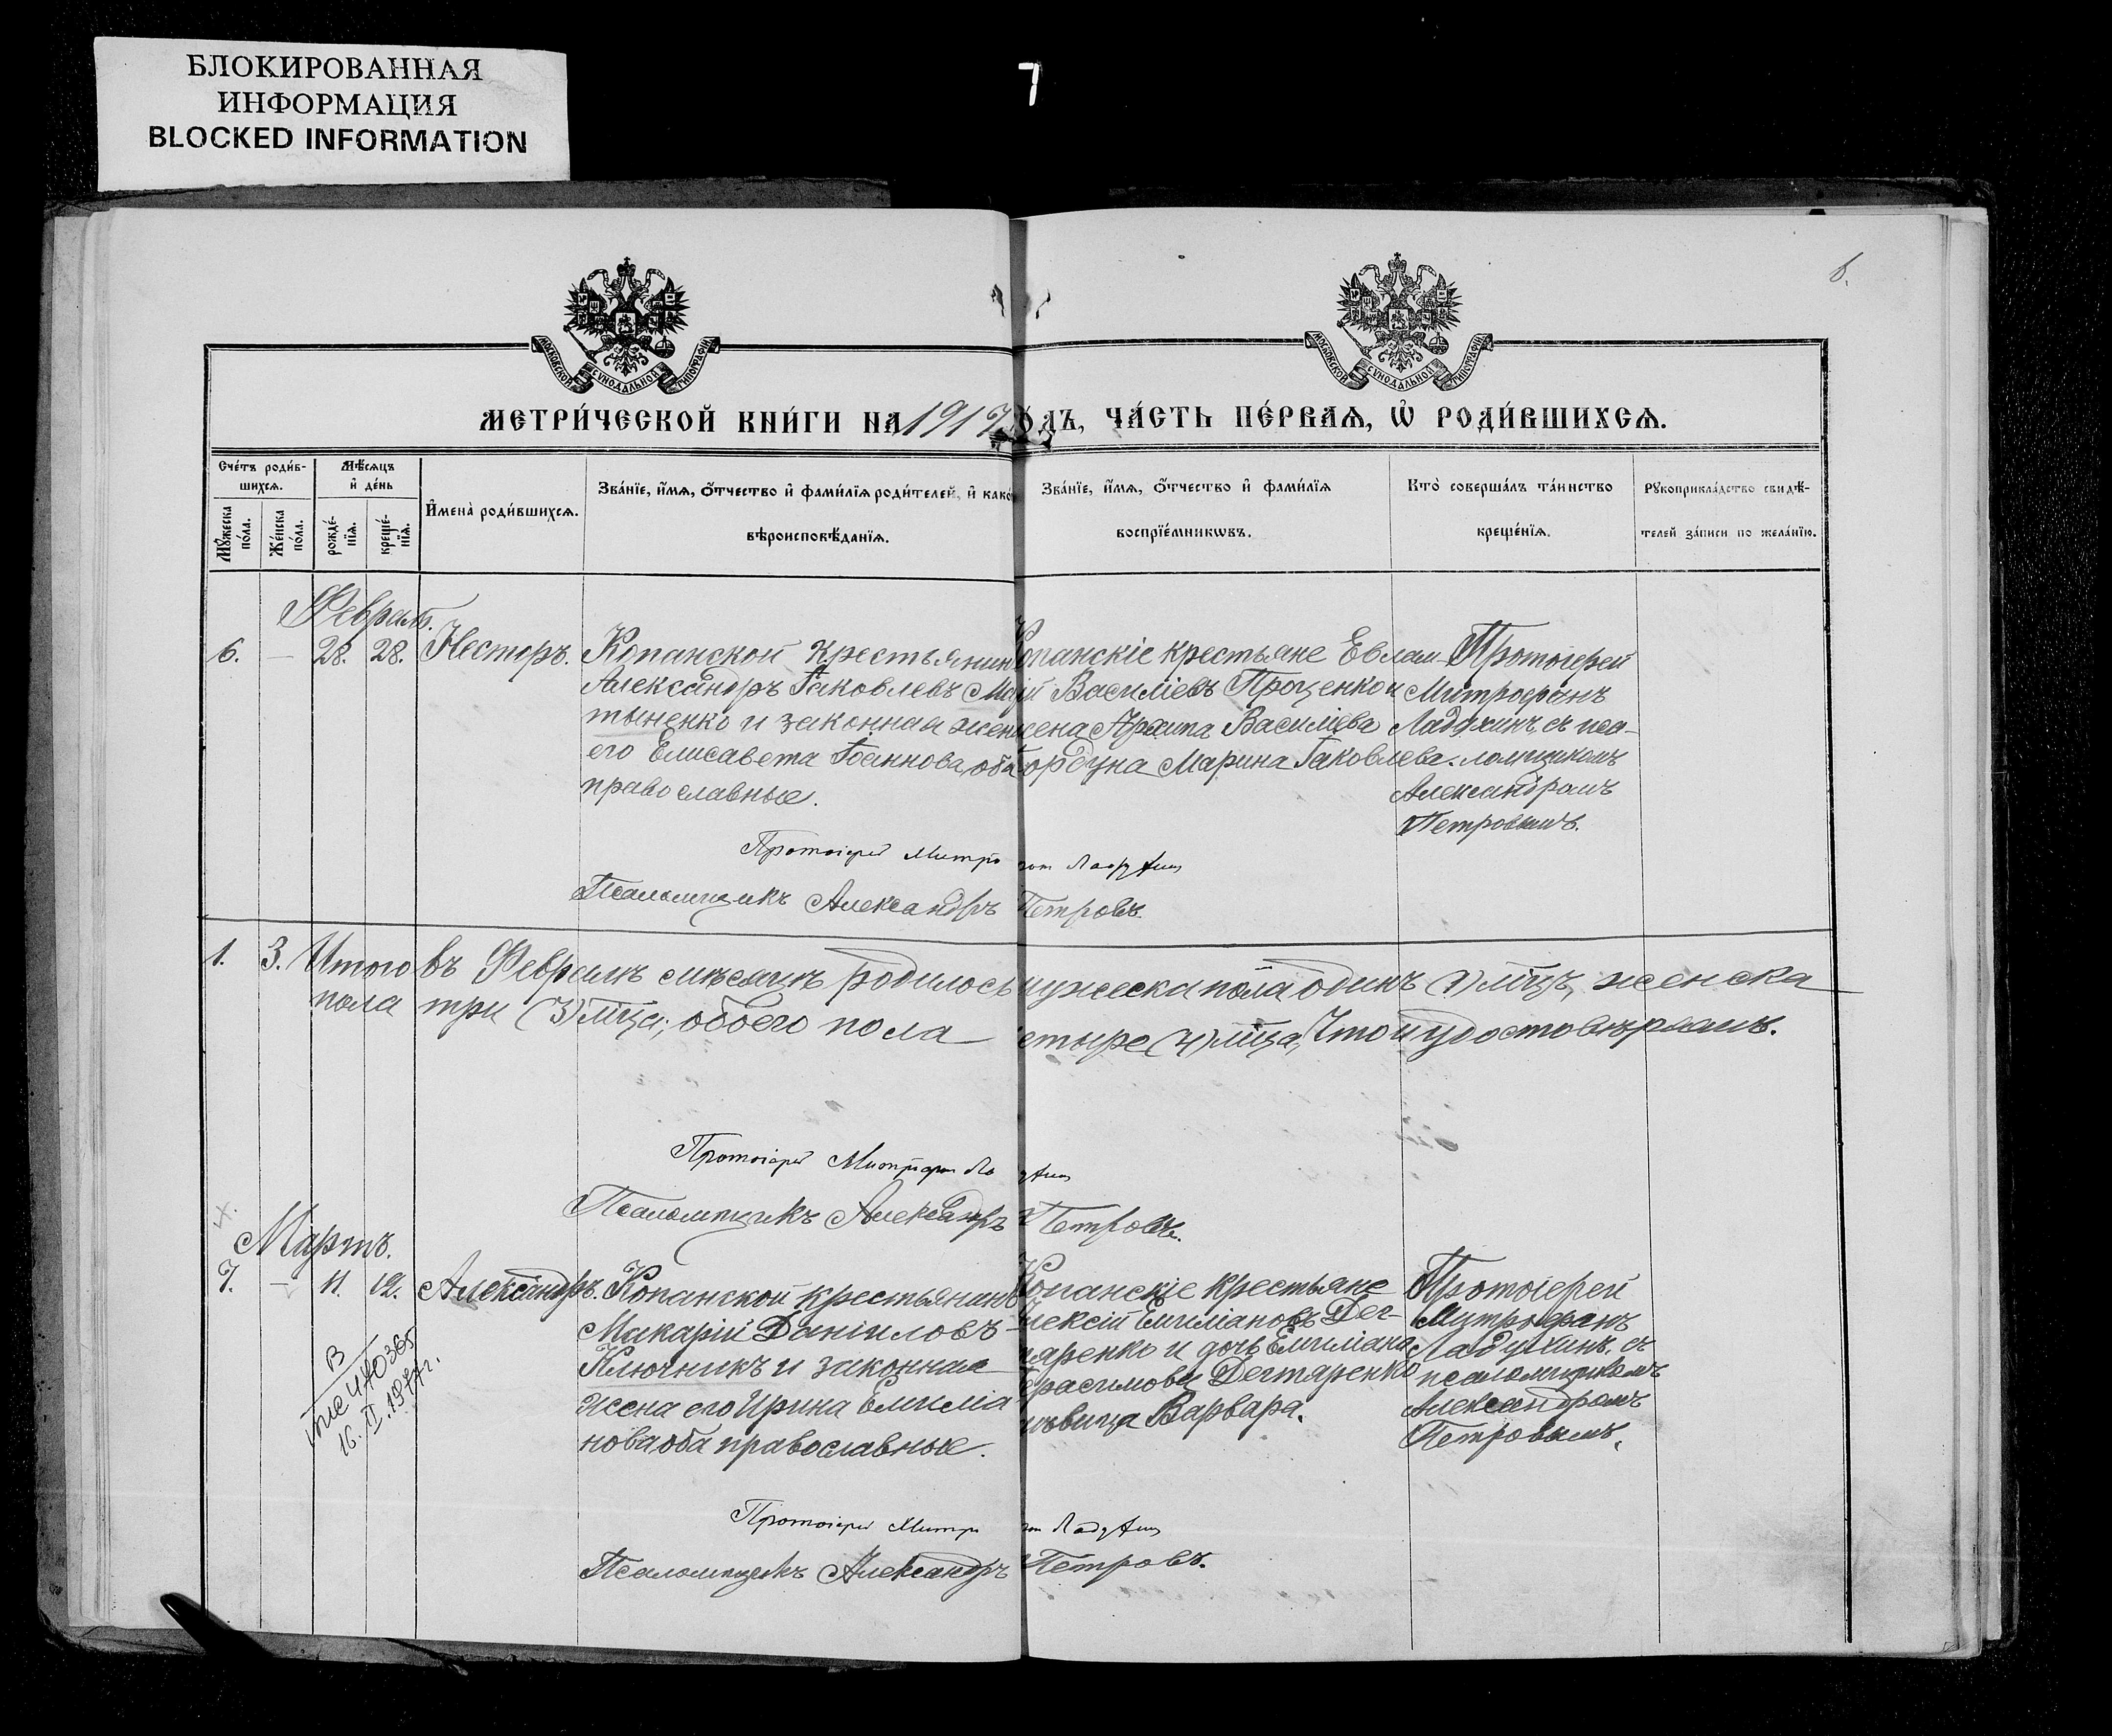 БЛОКИРОВАННАЯ
ИНФОРМАЦИЯ
BLOCKED INFORMATION
7
6.
МОСКОВСКОЙ СѴНОДАЛЬНОЙ ТИПОГРАФІИ
МОСКОВСКОЙ СѴНОДАЛЬНОЙ ТИПОГРАФІИ
МЕТРИ́ЧЕСКОЙ КНИ́ГИ НА 1917 ГОДЪ, ЧА́СТЬ ПЕ́РВАЯ, Ѡ РОДИ́ВШИХСЯ.
Сче́тъ роди́в-
шихся.
Мѣ́сяцъ
и҆ де́нь
Мꙋ́жеска
по́ла.
Же́нска
по́ла.
рожде́-
нїя.
креще́-
нїя.
И҆мена̀ роди́вшихся.
Зва́нїе, и҆́мя, ѻ҆́тчество и҆ фами́лїя роди́телей, и҆ како́
вѣроисповѣ́данїя.
Зва́нїе, и҆́мя, ѻ҆́тчество и҆ фами́лїя
воспрїе́мникѡвъ.
Кто̀ соверша́лъ та́инство
креще́нїя.
Рꙋкоприкла́дство свидѣ́-
телей за́писи по жела́нїю.
Февраль.
6. — 28. 28. Несторъ.
Копанской крестьянин
Александръ Іаковлевъ Ма
тыненко и законная жен
его Елисавета Іоаннова, оба
православные.
Копанскіе крестьяне Евлам-
пій Василіевъ Проценко и
жена Архипа Василіева
Кордуна Марина Іаковлева.
Протоіерей
Митрофанъ
Ладухинъ, съ пса-
ломщикомъ
Александромъ
Петровымъ.
Протоіерей Митро фан Ладухин
Псаломщикъ Александръ Петровъ.
1. 3. Итого въ Февралѣ мѣсяцѣ родилось мужеска пола одинъ (1) лицъ, женска
пола три (3) лица; обоего пола четыре (4) лица, Что и удостовѣряемъ.
Протоіерей Митрофан Ладухин
Псаломщикъ Александръ Петровъ.
Мартъ.
7. — 11. 12. Александръ.
Копанской крестьянинъ
Макарій Даніиловъ
Ключникъ и законная
жена его Ирина Емиліа
нова оба православные.
Копанскіе крестьяне
Алексій Емиліановъ Дег-
тяренко и дочь Емиліана
Герасимова Дегтяренко
дѣвица Варвара.
Протоіерей
Митрофанъ
Ладухинъ, съ
псаломщикомъ
Александромъ
Петровымъ.
В
16. II. 1977г.
Протоіерей Митро фан Ладухин
Псаломщикъ Александръ Петровъ.